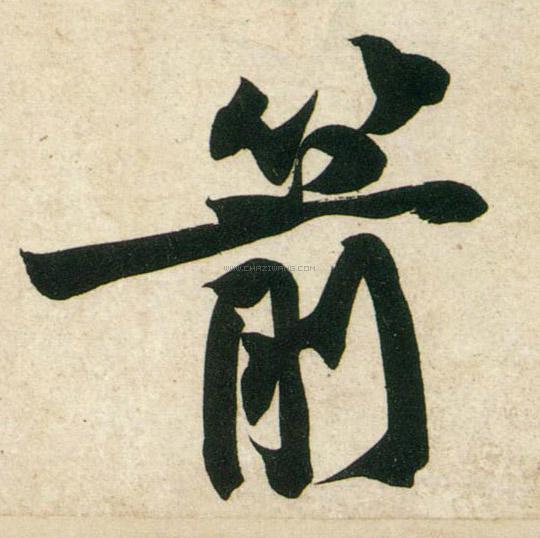 箭
WWW.CHAZIWANG.COM